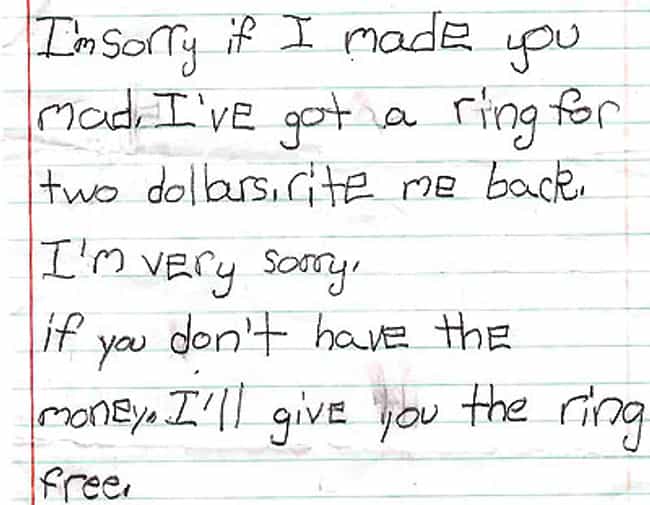 I'm sorry if I made you
mad. I've got a ring for
two dollars. rite me back.
I'm very sorry.
if you don't have the
money. I'll give you the ring
free.